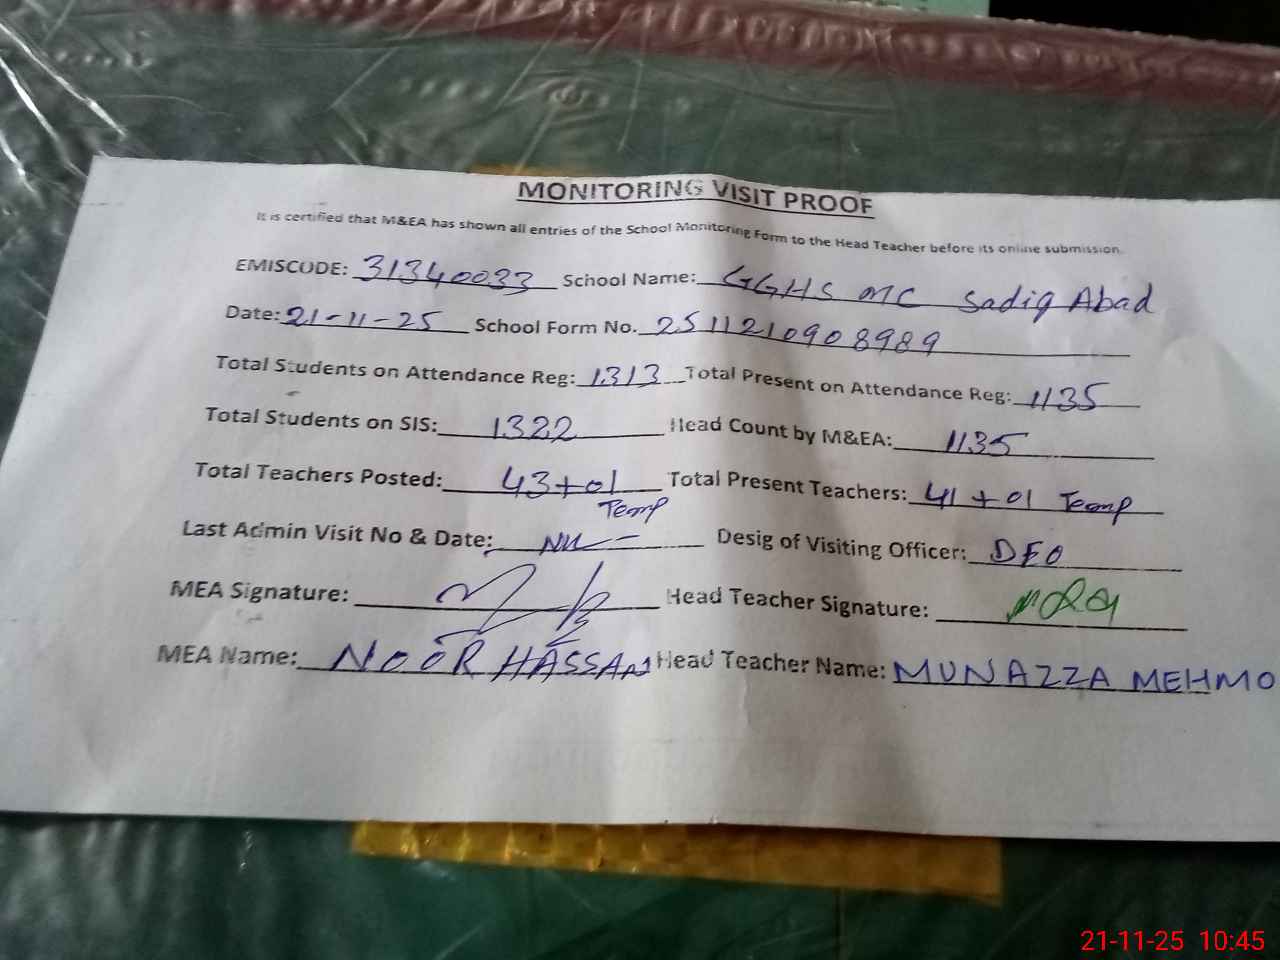 MONITORING VISIT PROOF
It is certified that M&EA has shown all entries of the School Monitoring Form to the Head Teacher before its online submission.
EMISCODE: 31340033 School Name: GGHS MC Sadiq Abad
Date: 21-11-25 School Form No. 2511210908989
Total Students on Attendance Reg: 1313 Total Present on Attendance Reg: 1135
Total Students on SIS: 1322 Head Count by M&EA: 1135
Total Teachers Posted: 43+01 Temp Total Present Teachers: 41+01 Temp
Last Admin Visit No & Date: Desig of Visiting Officer: DEO
MEA Signature: Head Teacher Signature:
MEA Name: NOOR HASSAN Head Teacher Name: MUNAZZA MEHMO
21-11-25 10:45